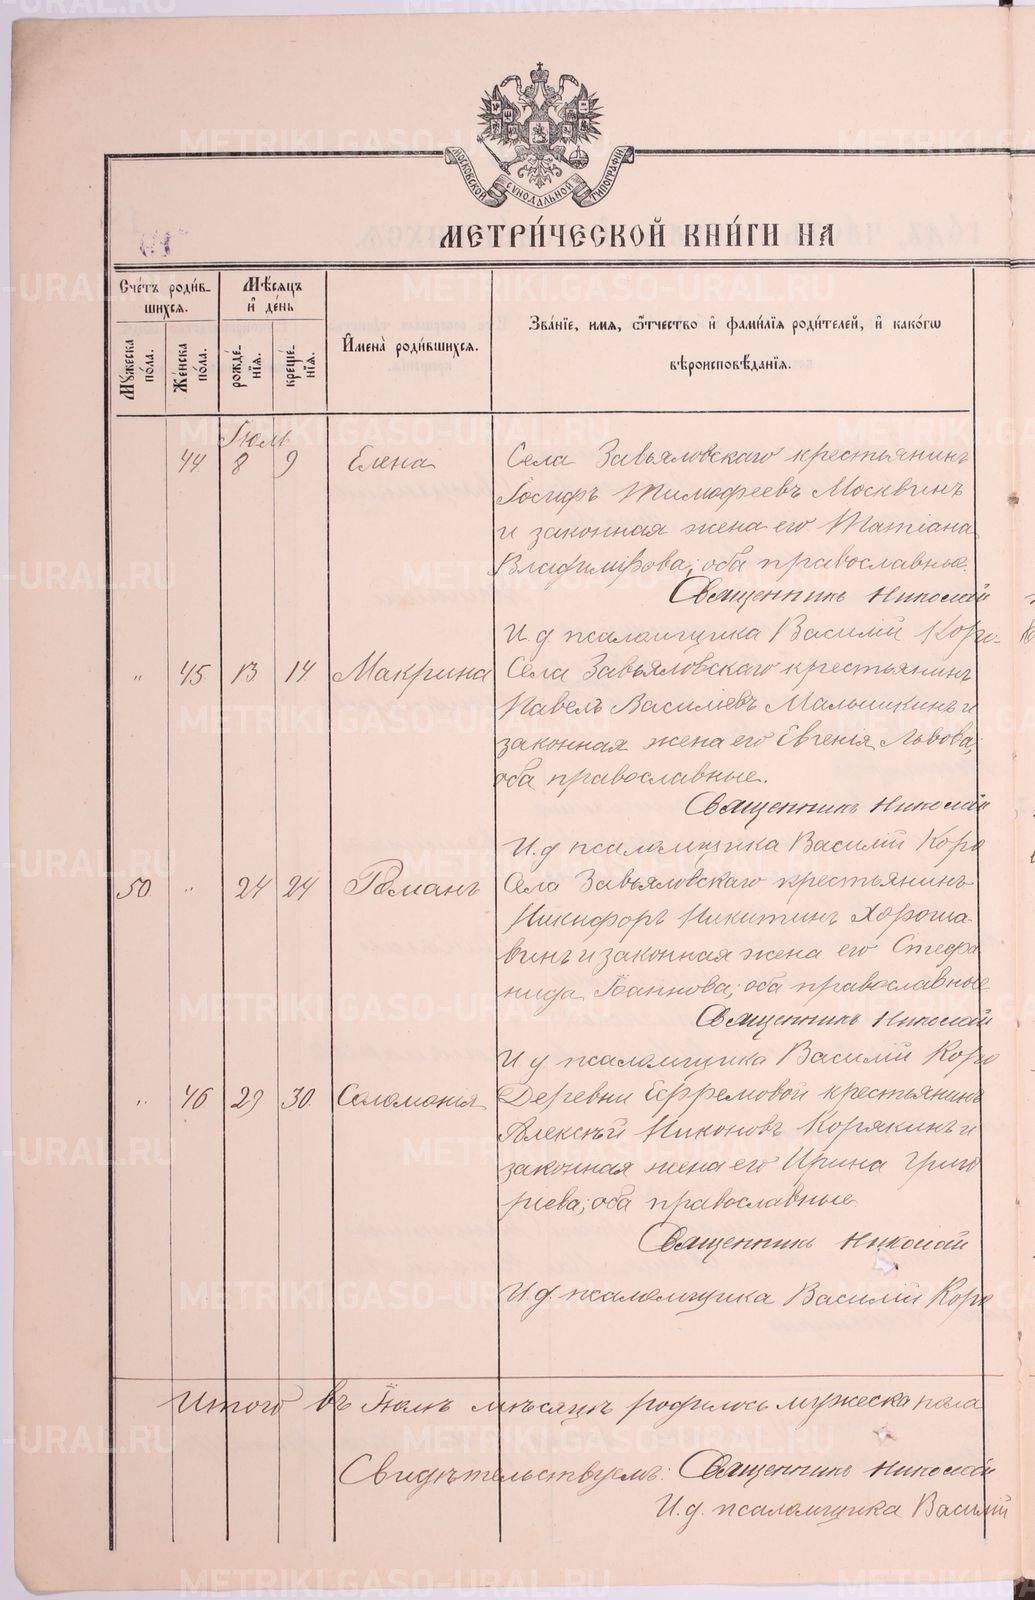 МОСКОВСКОЙ СУНОДАЛЬНОЙ ТИПОГРАФІИ
МЕТРИ́ЧЕСКОЙ КНИ́ГИ НА
Сче́тъ роди́в-
шихся.
Мѣ́сяцъ
и҆ де́нь
Мꙋ́жеска
по́ла.
Же́нска
по́ла.
рожде́-
нїѧ.
креще́-
нїѧ.
И҆мена̀ роди́вшихся.
Зва́нїе, и҆мѧ, ѿтчество и҆ фами́лїѧ роди́телей, и҆ како́гѡ
вѣроисповѣ́данїѧ.
Іюль
44 8 9 Елена Села Завьяловскаго крестьянинъ
Іосифъ Тимофеевъ Москвинъ
и законная жена его Татіана
Владимірова; оба православные.
Священникъ Николай
И. д. псаломщика Василій Коро-
" 45 13 14 Макрина Села Завьяловскаго крестьянинъ
Павелъ Василіевъ Малышкинъ и
законная жена его Евгенія Львова;
оба православные.
Священникъ Николай
И. д. псаломщика Василій Коро
50 " 24 24 Романъ Села Завьяловскаго крестьянинъ
Никифоръ Никитинъ Хороша-
винъ и законная жена его Стефа
нида Іоаннова; оба православные
Священникъ Николай
И. д. псаломщика Василій Коро
" 46 29 30. Саломонія Деревни Ефремовой крестьянинъ
Алексѣй Никоновъ Корякинъ и
законная жена его Ирина Григо
ріева; оба православные
Священникъ Николай
И. д. псаломщика Василій Коро
Итого въ Іюлѣ мѣсяцѣ родилось мужеска пола
Свидѣтельствуемъ: Священникъ Николай
И. д. псаломщика Василій